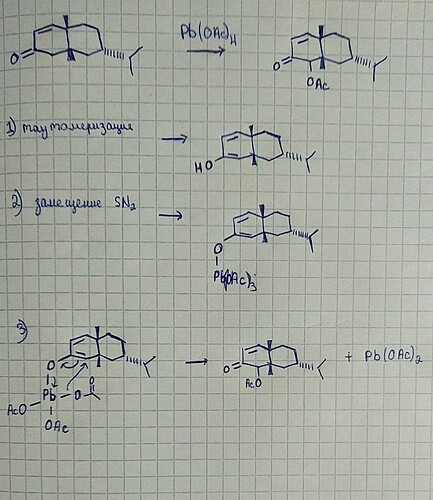 Pb(OAc)4
O
O
OAc
1) таутомеризация
HO
2) замещение SN2
O
Pb(OAc)3
3)
O
O
Pb
O
AcO
OAc
O
AcO
+ Pb(OAc)2